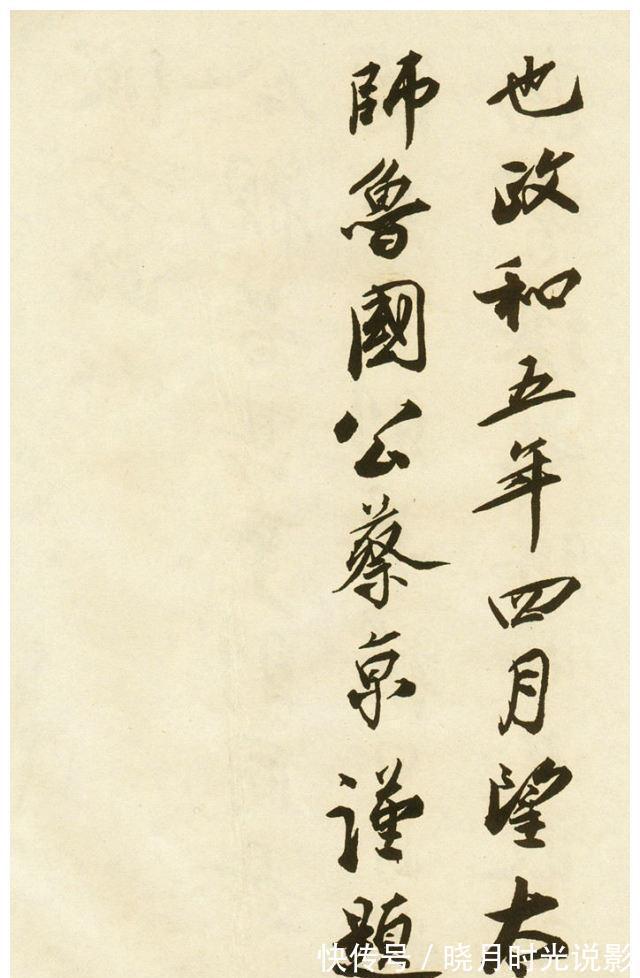 也政和五年四月望太
師魯國公蔡京謹題
快传号／晓月时光说影